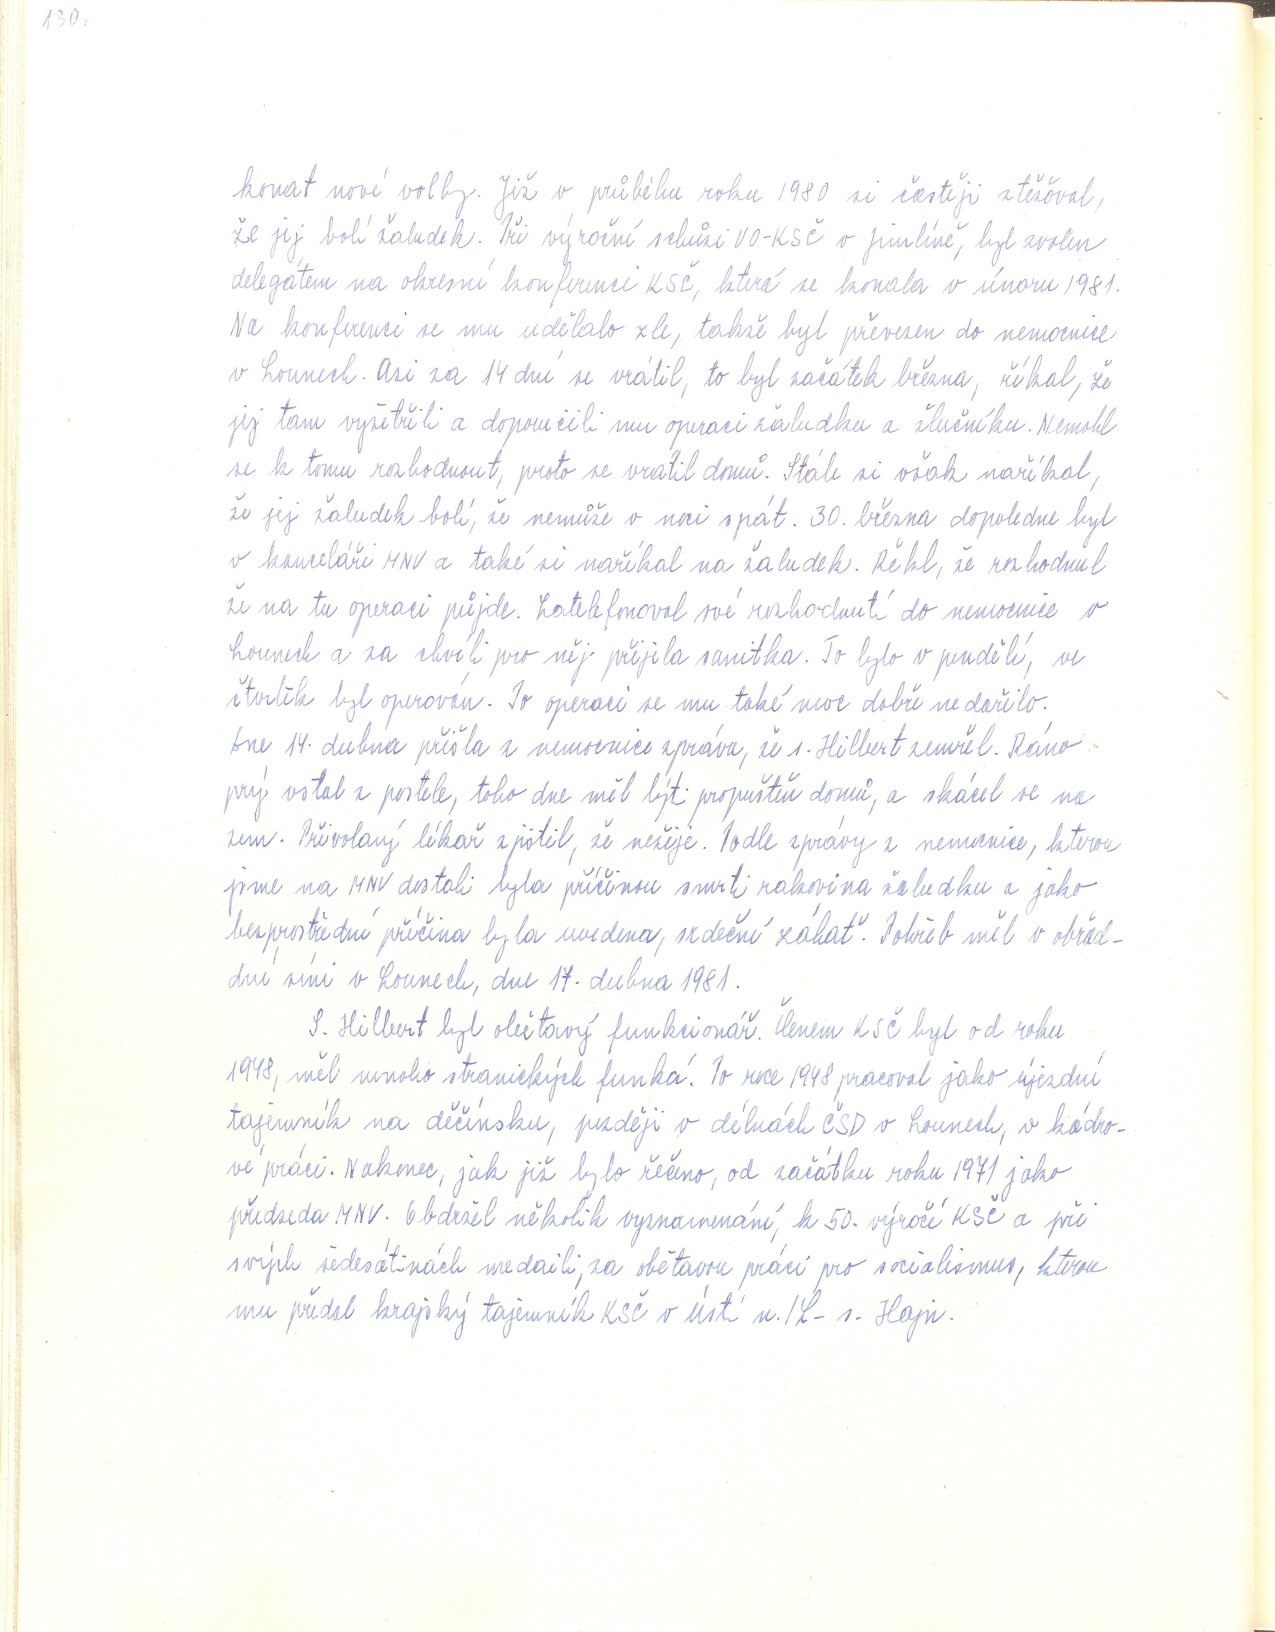 130.
konat nové volby. Již v průběhu roku 1980 si častěji stěžoval,
že jej bolí žaludek. Při výroční schůzi VO-KSČ v Jimlíně, byl zvolen
delegátem na okresní konferenci KSČ, která se konala v únoru 1981.
Na konferenci se mu udělalo zle, takže byl převezen do nemocnice
v Lounech. Asi za 14 dní se vrátil, to byl začátek března, říkal, že
jej tam vyšetřili a doporučili mu operaci žaludku a žlučníku. Nemohl
se k tomu rozhodnout, proto se vrátil domů. Stále si však naříkal,
že jej žaludek bolí, že nemůže v noci spát. 30. března dopoledne byl
v kanceláři MNV a také si naříkal na žaludek. Řekl, že rozhodnul
že na tu operaci půjde. Zatelefonoval své rozhodnutí do nemocnice v
Lounech a za chvíli pro něj přijela sanitka. To bylo v pondělí, ve
čtvrtek byl operován. Po operaci se mu také moc dobře nedařilo.
Dne 14. dubna přišla z nemocnice zpráva, že s. Hilbert zemřel. Ráno
prý vstal z postele, toho dne měl býti propuštěn domů, a skácel se na
zem. Přivolaný lékař zjistil, že nežije. Podle zprávy z nemocnice, kterou
jsme na MNV dostali byla příčinou smrti rakovina žaludku a jako
bezprostřední příčina byla uvedena, srdeční záhať. Pohřeb měl v obřad-
dní síni v Lounech, dne 17. dubna 1981.
S. Hilbert byl obětavý funkcionář. Členem KSČ byl od roku
1948, měl mnoho stranických funkcí. Po roce 1948 pracoval jako újezdní
tajemník na děčínsku, později v dílnách ČSD v Lounech, v kádro-
vé práci. Nakonec, jak již bylo řečeno, od začátku roku 1971 jako
předseda MNV. Obdržel několik vyznamenání, k 50. výročí KSČ a při
svých šedesátinách medaili, za obětavou práci pro socialismus, kterou
mu předal krajský tajemník KSČ v Ústí n./L- s. Hajn.